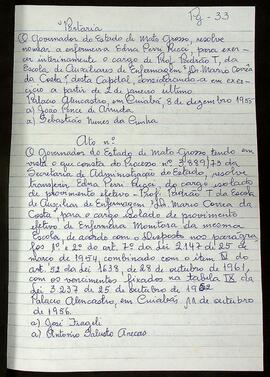 Pg - 33
"Portaria
O Governador do Estado de Mato Grosso, resolve
nomear a enfermeira Edna Perri Ricci, para exer-
cer interinamente o cargo de Prof. Padrão T, da
Escola de Auxiliares de Enfermagem "Dr. Mario Corrêa
da Costa", desta Capital, considerando-a em exer-
cicio a partir de 2 de janeiro ultimo.
Palacio Alencastro, em Cuiabá, 8 de dezembro 1955
a) João Ponce de Arruda
a) Sebastião Nunes da Cunha
Ato nº
O Governador do Estado de Mato Grosso tendo em
vista o que consta do Processo nº 3.889/75 da
Secretaria de Administração do Estado, resolve
transferir, Edna Perri Ricci, do cargo isolado
de provimento efetivo - Prof. Padrão T da Escola
de Auxiliar de Enfermagem "Dr. Mario Correa da
Costa", para o cargo isolado de provimento
efetivo de Enfermeira Monitora da mesma
Escola de acordo com o disposto nos paragra
fos 1º e 2º do art. 7º da Lei 2.147 de 25 de
março de 1954, combinado com o item II do
art. 52 da Lei 1638, de 28 de outubro de 1961,
com os vencimentos fixados na tabela IX da
Lei 3.237 de 25 de outubro de 1962
Palacio Alencastro, em Cuiabá, 11 de outubro
de 1956.
a) José Fragelli
a) Antonio Salusto Areias